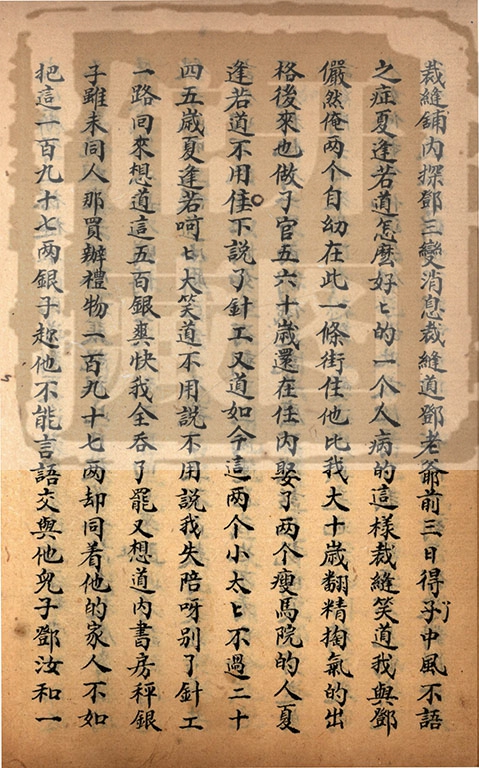 裁縫舖內探鄧三變消息裁縫道鄧老爺前三日得了中風不語
之症夏逢若道怎麼好〻的一个人病的這樣裁縫笑道我與鄧
儼然俺两个自幼在此一條街住他比我大十歲翻精掏氣的出
格後來也做了官五六十歲還在任內娶了两个瘦馬院的人夏
逢若道不用徃下說了針工又道如今這两个小太〻不過二十
四五歲夏逢若呵〻大笑道不用說不用說我失陪呀別了針工
一路回來想道這五百銀爽快我全吞了罷又想道內書房秤銀
子雖未同人那買辦禮物一百九十七两却同着他的家人不如
把這一百九十七两銀子趂他不能言語交與他兒子鄧汝和一